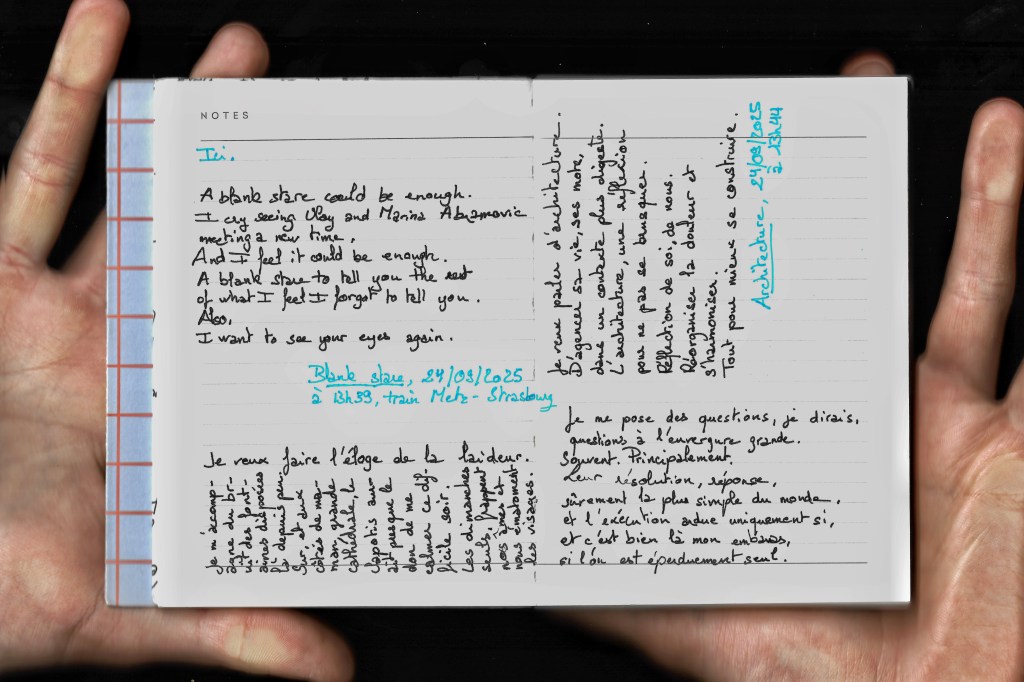 NOTES
Ici.
A blank stare could be enough.
I cry seeing Ulay and Marina Abramovic
meeting a new time.
And I feel it could be enough.
A blank stare to tell you the rest
of what I feel I forgot to tell you.
Also,
I want to see your eyes again.
Blank stare, 24/09/2025
à 13h39, train Metz - Strasbourg
Je veux faire l'éloge de la laideur.
Je m'accomp-
agne du br-
uit des font-
aines disposées
là depuis peu.
Sur, et aux
côtés de ma-
man grande
cathédrale, le
clapotis aur-
ait presque le
don de me
calmer ce dif-
ficile soir.
Les dimanches
seuls, frappent
nos âmes et
nous émaciment
les visages.
Je veux parler d'architecture.
D'agencer sa vie, ses mots,
dans un contexte plus digeste.
L'architecture, une réflexion
pour ne pas se brusquer.
Réflection de soi, de nous.
Réorganiser la douleur et
s'harmoniser.
Tout pour mieux se construire.
Architecture, 24/09/2025
à 13h44
Je me pose des questions, je dirais,
questions à l'envergure grande.
Souvent. Principalement.
Leur résolution, réponse,
sûrement la plus simple du monde,
et l'exécution ardue uniquement si,
et c'est bien là mon embarras,
si l'on est éperduement seul.